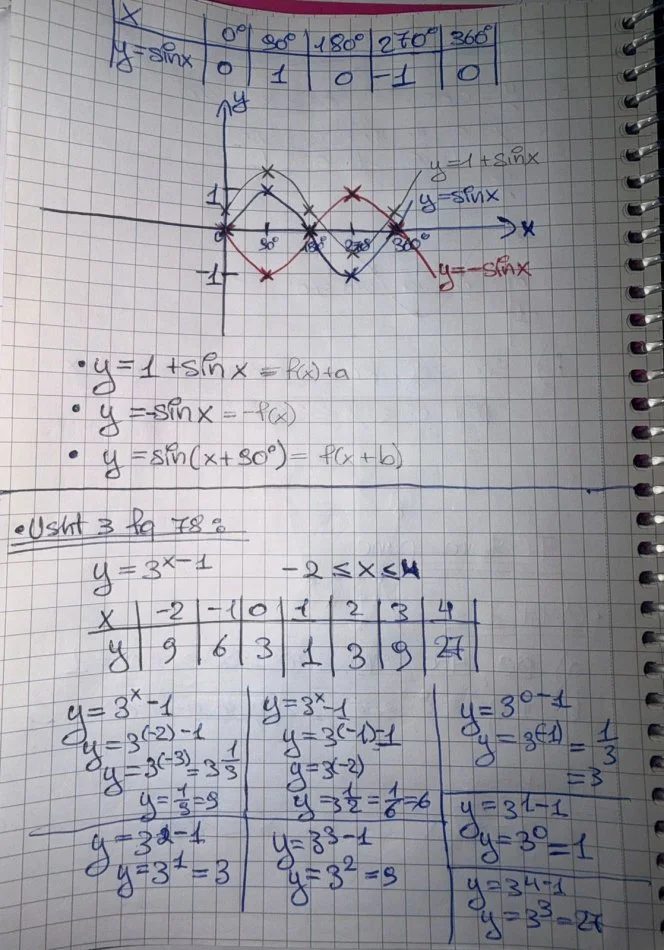 x 0° 90° 180° 270° 360°
y=sinx 0 1 0 -1 0
y
y=1+sinx
1
y=sinx
0 90° 180° 270° 360° x
-1
y=-sinx
• y=1+sinx = f(x)+a
• y=-sinx = -f(x)
• y=sin(x+90°)= f(x+b)
• Usht 3 fq 78:
y=3^x-1 -2≤x≤4
x -2 -1 0 1 2 3 4
y 9 6 3 1 3 9 27
y=3^x-1
y=3^(-2)-1
y=3^(-3)=3 1/3
y=1/9=9
y=3^x-1
y=3^(-1)-1
y=3(-2)
y=3 1/2=1/6=6
y=3^0-1
y=3^(-1)=1/3
=3
y=3^1-1
y=3^0=1
y=3^2-1
y=3^1=3
y=3^3-1
y=3^2=9
y=3^4-1
y=3^3=27